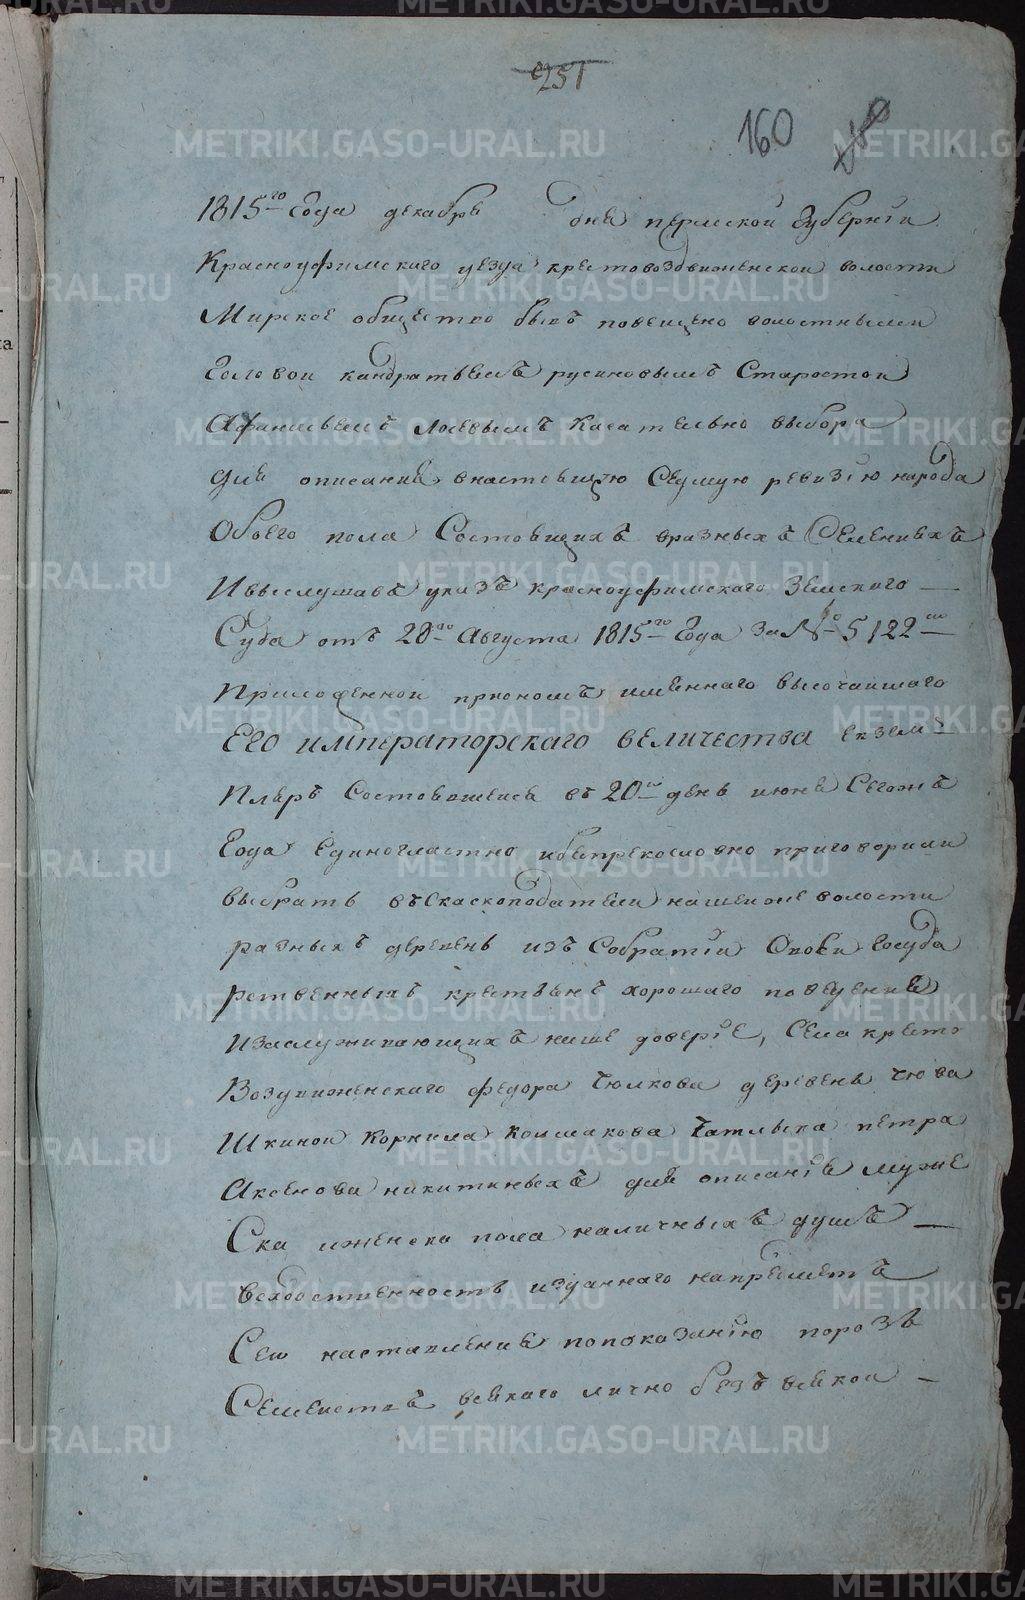 251
160
1815го Года декабря дня пермской Губернiи
Красноуфимскаго уезда крестовоздвиженской волости
Мирское общество бывъ повещено волостнымъ
Головои кандратьемъ русиновымъ Старостои
Афанасьемъ Лоевымъ Касательно выбора
для описания внастоящую Седмую ревизiю народа
Обоего пола Состоящихъ вразныхъ Селенияхъ
Ивыслушавъ указъ красноуфимскаго Земскаго
Суда отъ 20го Августа 1815го Года За №о 5122мъ
Приложеннои при ономъ имяннаго высочаишаго
Его императорскаго величества екзем-
Пляръ Состоявшеися въ 20и день июня Сегожъ
Года Единогластно ибеспрекословно приговорили
выбрать въ Скаскоподатели нашеиже волости
разныхъ деревень изъ Собратiи Своеи Госуда
рственныхъ крестьянъ хорошаго поведения
изаслуживающихъ наше доверiе, Села кресто
Воздвиженскаго федора Чюлкова деревень чюва
Шкинои Корнила Колмакова Чатлыка петра
Аксенова никитиныхъ для описанiя муже
Ска иженска пола наличныхъ душъ
всходственность изданнаго напредметъ
Сеи наставления попоказанiю порознь
Семеиствъ всякаго лично безъ всякои
METRIKI.GASO-URAL.RU